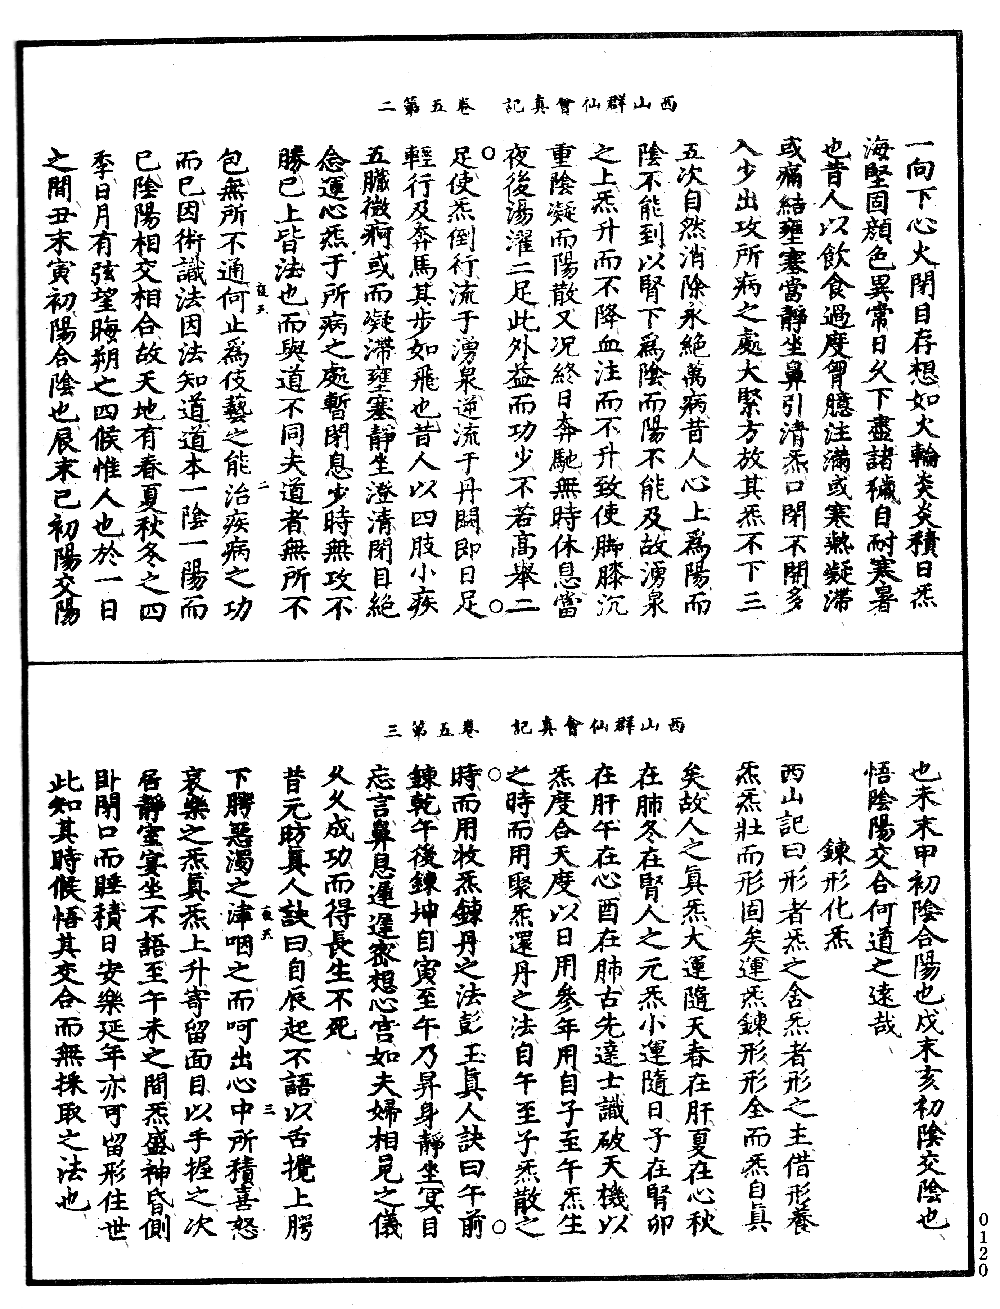 西山群仙會真記　卷五第二
一向下心火閉目存想如火輪炎炎積日炁
海堅固顏色異常日久下盡諸穢自耐寒暑
也昔人以飲食過度胷臆注滿或寒熱凝滯
或痛結壅塞當靜坐鼻引清炁口閉不開多
入少出攻所病之處大緊方放其炁不下三
五次自然消除永絕萬病昔人心上爲陽而
陰不能到以腎下爲陰而陽不能及故湧泉
之上炁升而不降血注而不升致使脚膝沉
重陰凝而陽散又况終日奔馳無時休息當
夜後湯濯二足此外益而功少不若高舉二
足使炁倒行流于湧泉逆流于丹闕即日足
輕行及奔馬其步如飛也昔人以四肢小疾
五臟微痾或而凝滯壅塞靜坐澄清閉目絕
念運心炁于所病之處暫閉息少時無攻不
勝已上皆法也而與道不同夫道者無所不
包無所不通何止爲伎藝之能治疾病之功
而已因術識法因法知道道本一陰一陽而
已陰陽相交相合故天地有春夏秋冬之四
季日月有弦望晦朔之四候惟人也於一日
之間丑末寅初陽合陰也辰末巳初陽交陽
西山群仙會真記　卷五第三
也未末申初陰合陽也戌末亥初陰交陰也
悟陰陽交合何道之遠哉
鍊形化炁
西山記曰形者炁之舍炁者形之主借形養
炁炁壯而形固矣運炁鍊形形全而炁自真
矣故人之真炁大運隨天春在肝夏在心秋
在肺冬在腎人之元炁小運隨日子在腎卯
在肝午在心酉在肺古先達士識破天機以
炁度合天度以日用參年用自子至午炁生
之時而用聚炁還丹之法自午至子炁散之
時而用收炁鍊丹之法彭玉真人訣曰午前
鍊乾午後鍊坤自寅至午乃昇身靜坐冥目
忘言鼻息遲遲密想心宫如夫婦相見之儀
久久成功而得長生不死
昔元昉真人訣曰自辰起不語以舌攪上腭
下腭惡濁之津咽之而呵出心中所積喜怒
哀樂之炁真炁上升寄留面目以手握之次
居靜室宴坐不語至午未之間炁盛神昏側
卧閉口而睡積日安樂延年亦可留形住世
此知其時候悟其交合而無採取之法也
0120